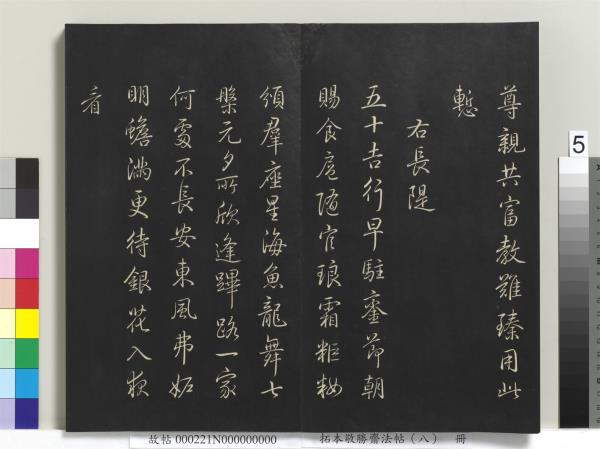 尊親共富教雖臻用此
慙
右長隄
五十吉行早駐鑾節朝
賜食扈隨官琅霜粔籹
頒羣座星海魚龍舞七
槃元夕所欣逢蹕路一家
何處不長安東風弗妬
明蟾滿更待銀花入夜
看
5
故帖 000221N000000000
拓本敬勝齋法帖（八） 冊